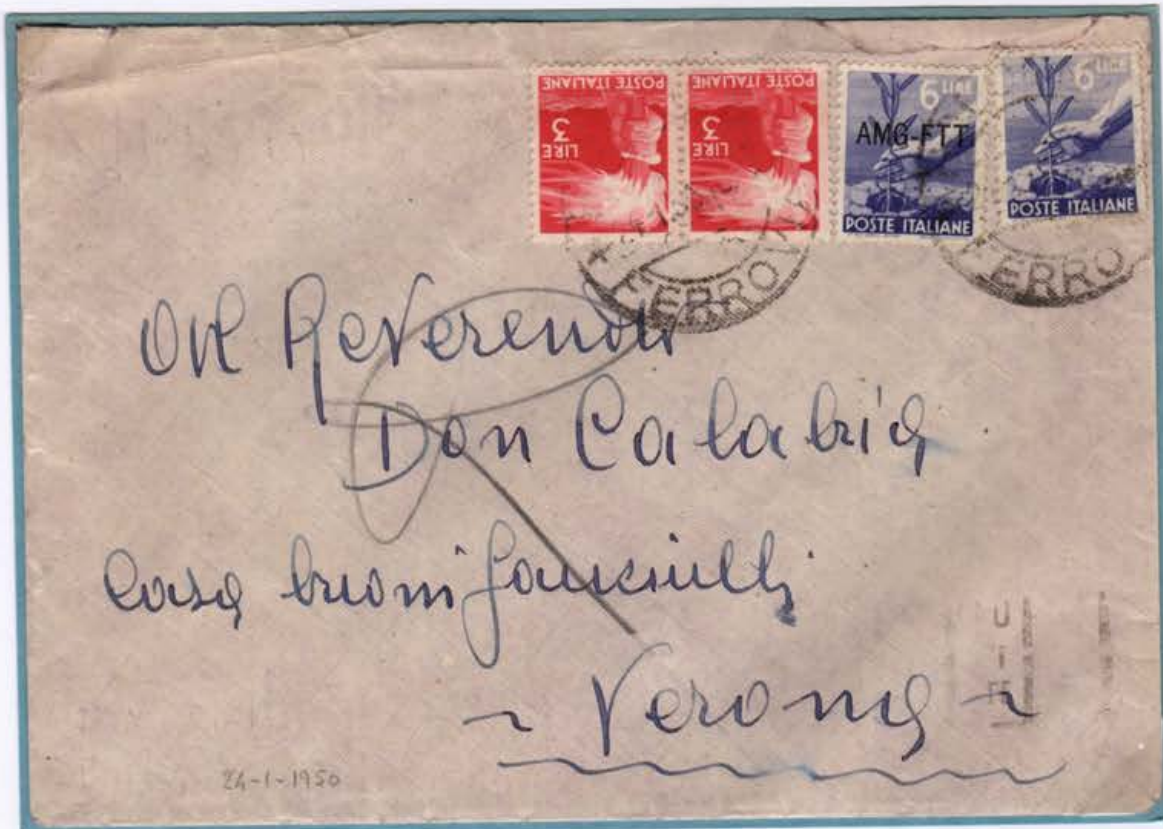 POSTE ITALIANE
LIRE 3
POSTE ITALIANE
LIRE 3
6 LIRE
AMG-FTT
POSTE ITALIANE
6 LIRE
POSTE ITALIANE
FERROV
FERRO
Reverendo
Don Calabria
Casa buoni fanciulli
~ Verona ~
24-1-1950